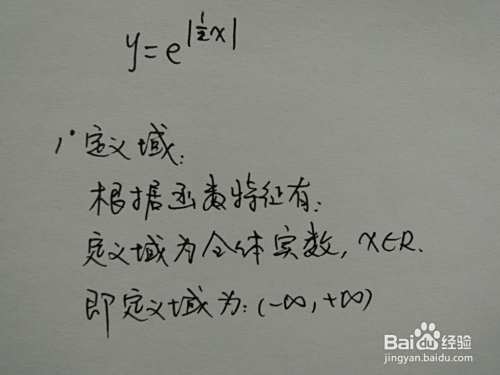 y=e^|½x|
1°定义域:
根据函数特征有:
定义域为全体实数, x∈R.
即定义域为: (-∞, +∞)
Baidu经验
jingyan.baidu.com